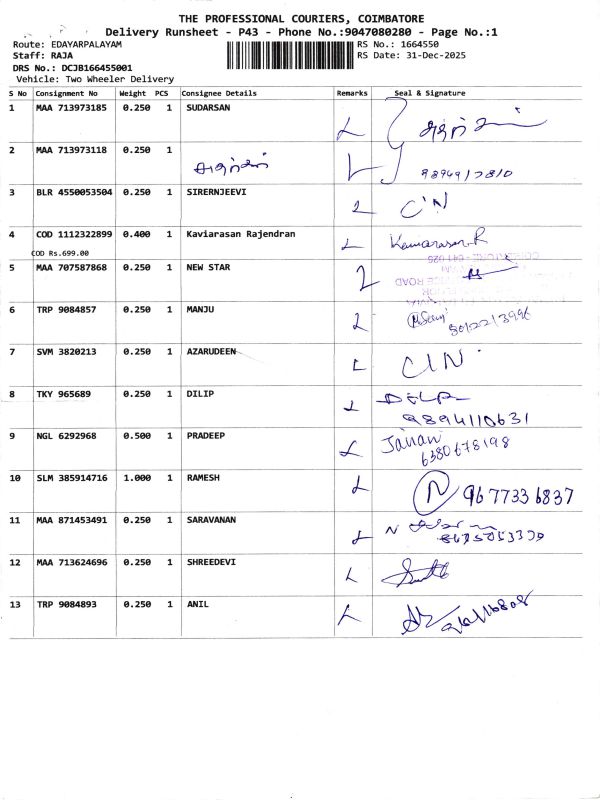 THE PROFESSIONAL COURIERS, COIMBATORE
Delivery Runsheet - P43 - Phone No.:9047080280 - Page No.:1
Route: EDAYARPALAYAM RS No.: 1664550
Staff: RAJA RS Date: 31-Dec-2025
DRS No.: DCJB166455001
Vehicle: Two Wheeler Delivery
S No Consignment No Weight PCS Consignee Details Remarks Seal & Signature
1 MAA 713973185 0.250 1 SUDARSAN
2 MAA 713973118 0.250 1
3 BLR 4550053504 0.250 1 SIRERNJEEVI
4 COD 1112322899 0.400 1 Kaviarasan Rajendran
COD Rs.699.00
5 MAA 707587868 0.250 1 NEW STAR
6 TRP 9084857 0.250 1 MANJU
7 SVM 3820213 0.250 1 AZARUDEEN
8 TKY 965689 0.250 1 DILIP
9894110631
9 NGL 6292968 0.500 1 PRADEEP Janani
6380678198
10 SLM 385914716 1.000 1 RAMESH N 9677336837
11 MAA 871453491 0.250 1 SARAVANAN
12 MAA 713624696 0.250 1 SHREEDEVI
13 TRP 9084893 0.250 1 ANIL